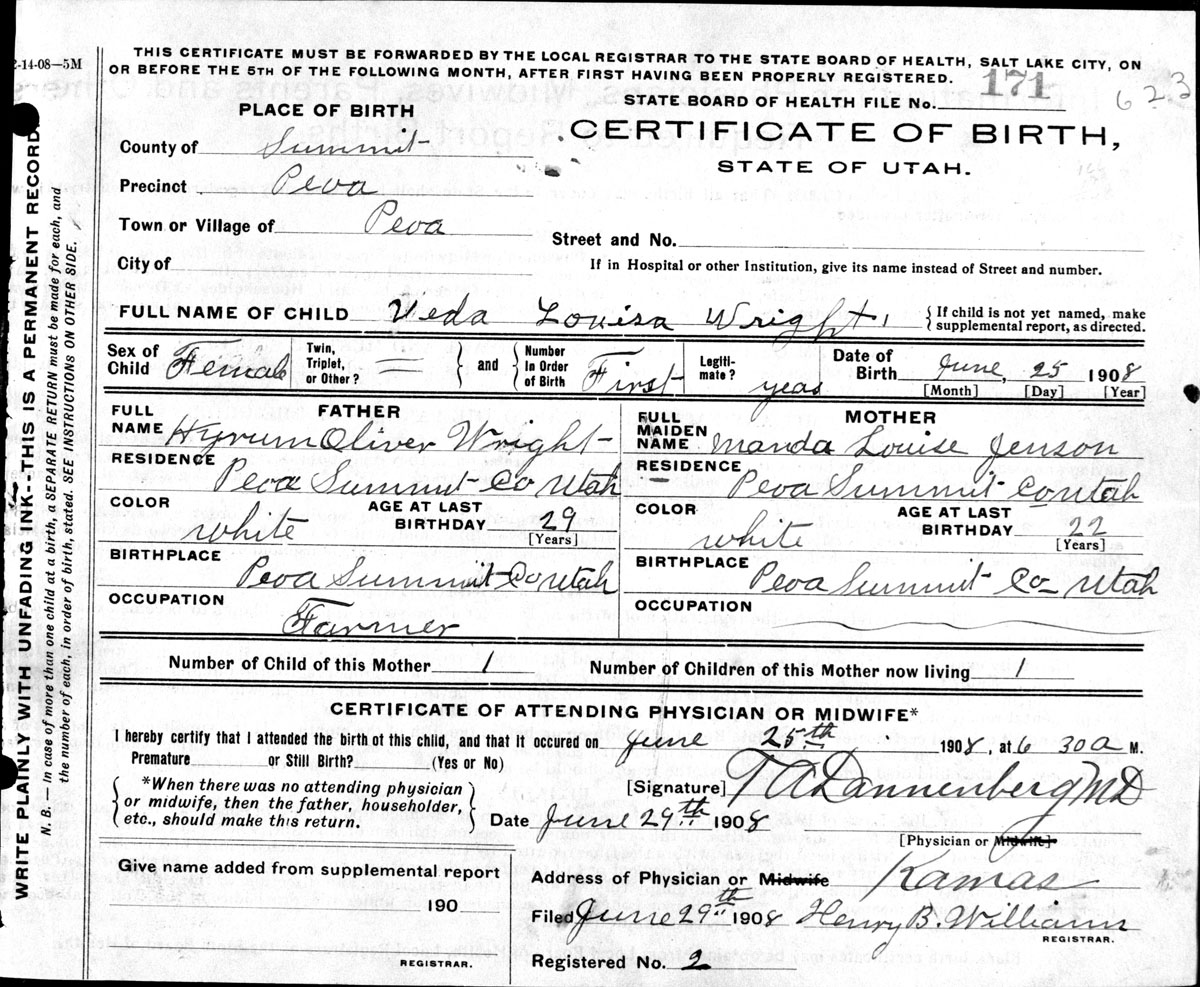 2-14-08—5M
THIS CERTIFICATE MUST BE FORWARDED BY THE LOCAL REGISTRAR TO THE STATE BOARD OF HEALTH, SALT LAKE CITY, ON
OR BEFORE THE 5TH OF THE FOLLOWING MONTH, AFTER FIRST HAVING BEEN PROPERLY REGISTERED.
STATE BOARD OF HEALTH FILE No. 171
623
CERTIFICATE OF BIRTH,
STATE OF UTAH.
PLACE OF BIRTH
County of Summit
Precinct Peoa
Town or Village of Peoa
Street and No.
City of
If in Hospital or other Institution, give its name instead of Street and number.
FULL NAME OF CHILD Veda Louisa Wright
{ If child is not yet named, make
supplemental report, as directed.
Sex of Child Female
Twin, Triplet, or Other? =
and
Number In Order of Birth First
Legiti-mate? yeas
Date of Birth June, 25 1908
[Month] [Day] [Year]
FATHER
FULL NAME Hyrum Oliver Wright
RESIDENCE Peoa Summit Co Utah
COLOR white AGE AT LAST BIRTHDAY 29
[Years]
BIRTHPLACE Peoa Summit Co Utah
OCCUPATION Farmer
MOTHER
FULL MAIDEN NAME Manda Louise Jenson
RESIDENCE Peoa Summit Co Utah
COLOR white AGE AT LAST BIRTHDAY 22
[Years]
BIRTHPLACE Peoa Summit Co Utah
OCCUPATION
Number of Child of this Mother 1 Number of Children of this Mother now living 1
CERTIFICATE OF ATTENDING PHYSICIAN OR MIDWIFE*
I hereby certify that I attended the birth of this child, and that it occured on June 25th 1908, at 6 30 a M.
Premature or Still Birth? (Yes or No)
*When there was no attending physician
or midwife, then the father, householder,
etc., should make this return.
[Signature] T A Dannenberg MD
Date June 29th 1908
[Physician or Midwife]
Give name added from supplemental report
190
REGISTRAR.
Address of Physician or Midwife Kamas
Filed June 29th 1908 Henry B. Williams
REGISTRAR.
Registered No. 2
WRITE PLAINLY WITH UNFADING INK--THIS IS A PERMANENT RECORD.
N. B.—In case of more than one child at a birth, a SEPARATE RETURN must be made for each, and
the number of each, in order of birth, stated. SEE INSTRUCTIONS ON OTHER SIDE.